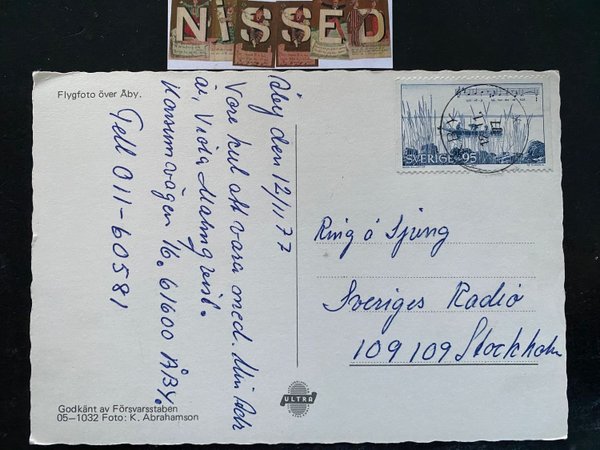 NiSSED
Flygfoto över Åby.
Åby den 12/11 77
Vore kul att vara med. Min Adr
är, Viola Malmqvist.
Konsumvägen 16. 61600 ÅBY.
Tell 011-60581
SVERIGE 95
Ring ó Sjung
Sveriges Radio
109109 Stockholm
ULTRA
Godkänt av Försvarsstaben
05–1032 Foto: K. Abrahamson